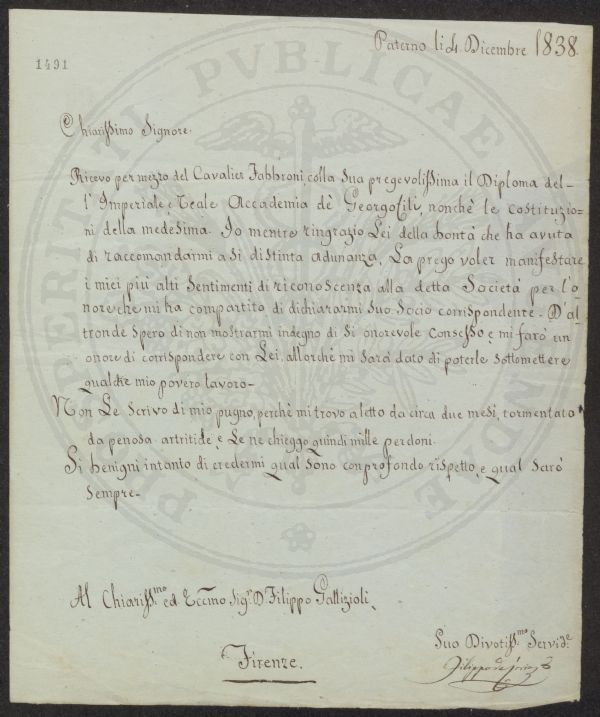 Paterno li 4 Dicembre 1838.
1491
PROSPERITATI PVBLICAE AVGENDAE
Chiarissimo Signore.
Ricevo per mezzo del Cavalier Fabbroni, colla Sua pregevolissima il Diploma del-
l'Imperiale e Reale Accademia dè Georgofili, nonchè le costituzio-
ni della medesima. Io mentre ringrazio Lei della bontà che ha avuta
di raccomandarmi a si distinta adunanza, La prego voler manifestare
i miei più alti Sentimenti di riconoscenza alla detta Società per l'o-
nore che mi ha compartito di dichiararmi Suo Socio corrispondente. D'al
tronde spero di non mostrarmi indegno di si onorevole Consesso, e mi farò un
onore di corrispondere con Lei, allorchè mi sarà dato di poterle sottomettere
qualche mio povero lavoro-
Non Le scrivo di mio pugno, perchè mi trovo a letto da circa due mesi, tormentato
da penosa artritide, e Le ne chieggo quindi mille perdoni.
Si benigni intanto di credermi qual sono con profondo rispetto, e qual sarò
Sempre-
Al Chiariss.mo ed Eccmo Sigr. D. Filippo Gallizioli,
Firenze.
Suo Divotiss.mo Servid.e
Filippo de